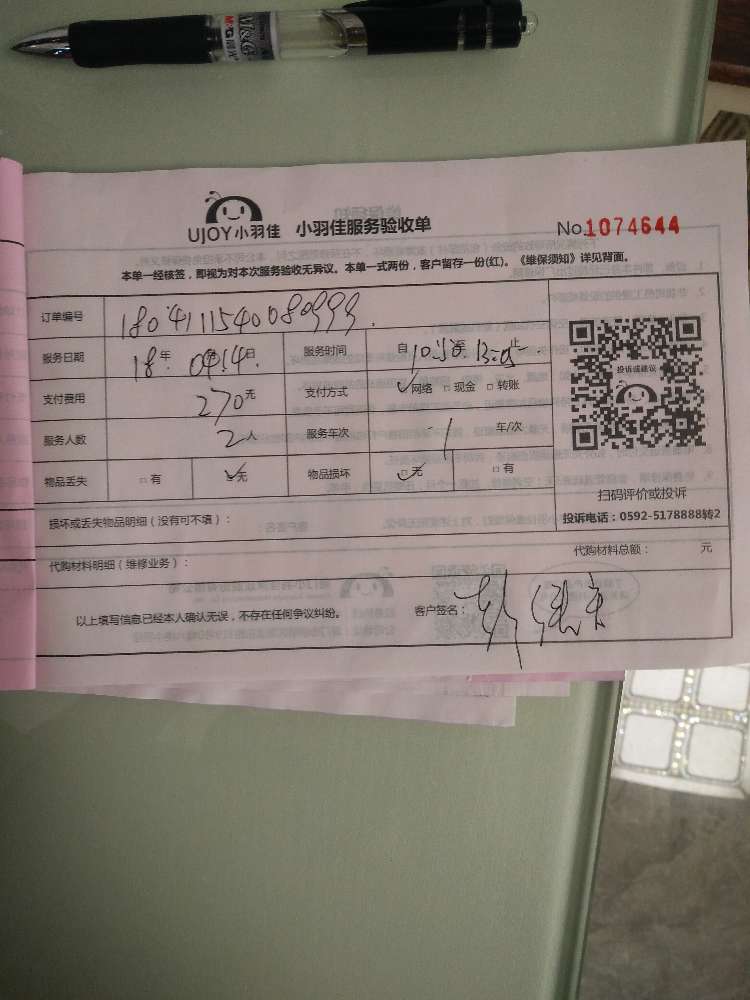 M&G
UJOY小羽佳 小羽佳服务验收单 No.1074644
本单一经核签，即视为对本次服务验收无异议。本单一式两份，客户留存一份(红)。《维保须知》详见背面。
订单编号
服务日期 18年 04月14日 服务时间 自 至 止
支付费用 270元 支付方式 网络 □现金 □转账
投诉或建议
服务人数 2人 服务车次 1 车/次
物品丢失 □有 □无 物品损坏 □无 □有
扫码评价或投诉
损坏或丢失物品明细（没有可不填）：
投诉电话：0592-5178888转2
代购材料明细（维修业务）： 代购材料总额： 元
以上填写信息已经本人确认无误，不存在任何争议纠纷。 客户签名：